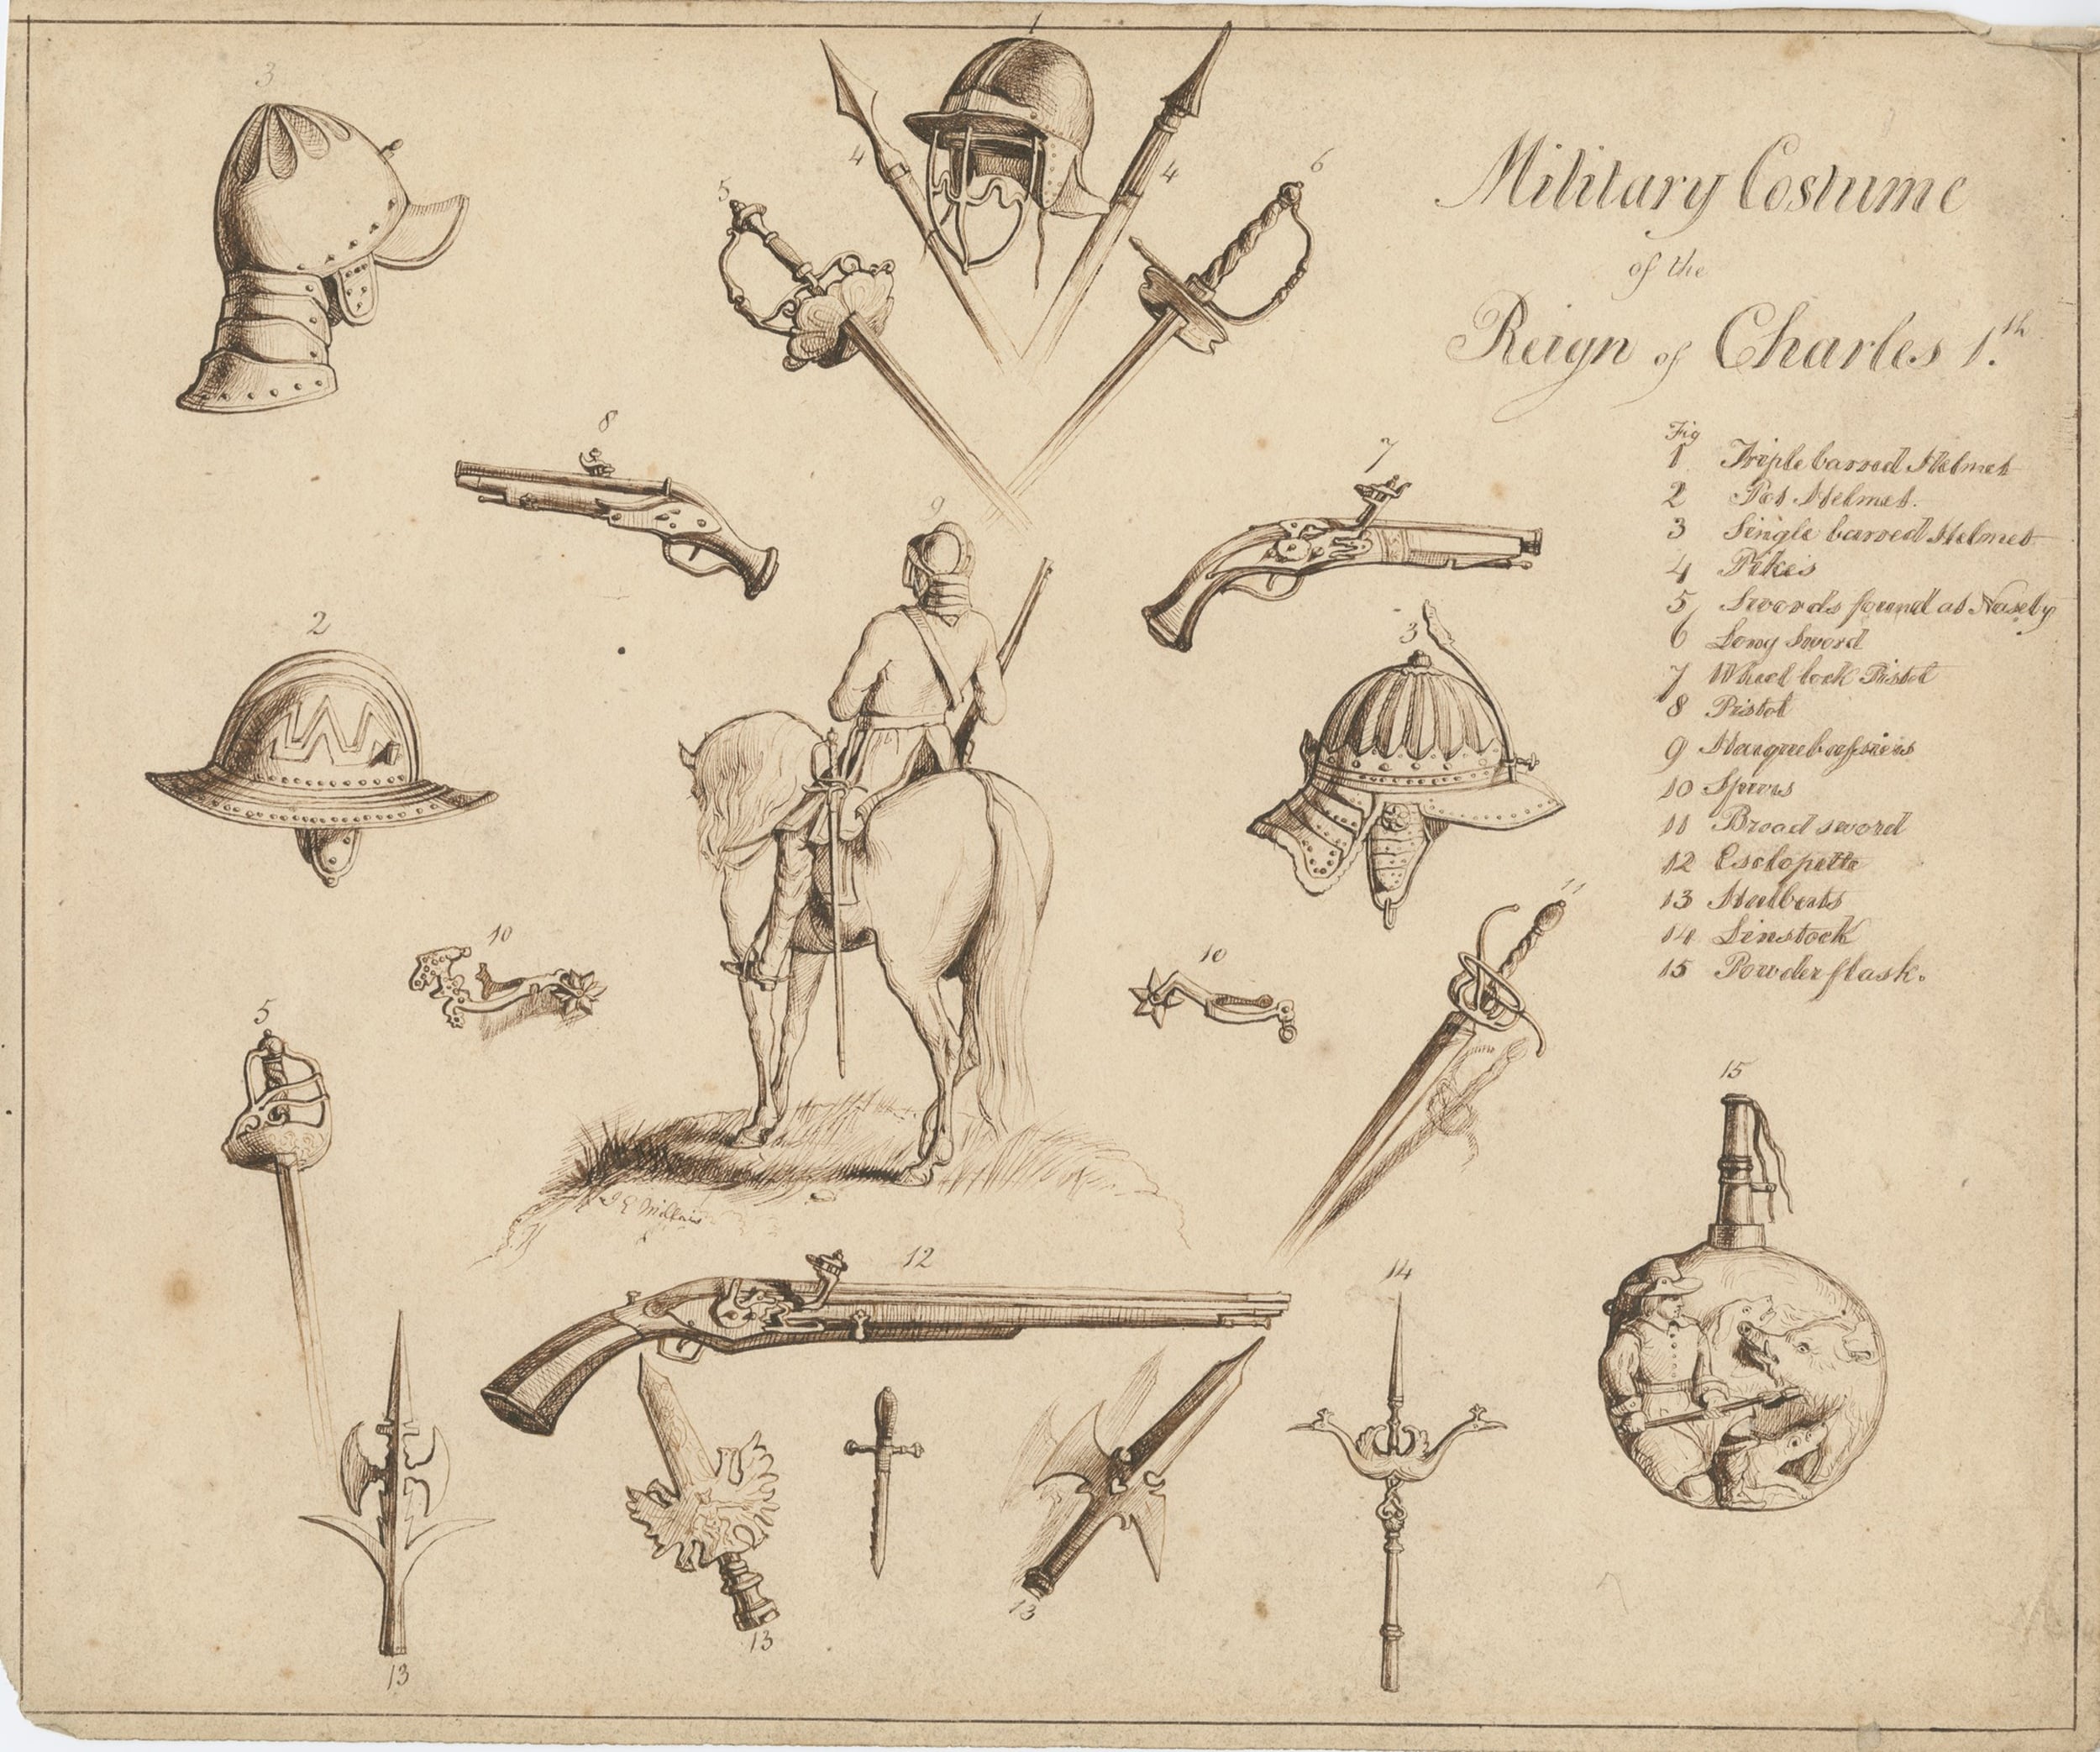 Military Costume
of the
Reign of Charles 1.th
Fig
1 Triple barred Helmet
2 Pot Helmet.
3 Single barred Helmet
4 Pikes
5 Swords found at Naseby
6 Long Sword
7 Wheel lock Pistol
8 Pistol
9
10 Spurs
11 Broad sword
12 Esclopette
13 Halberts
14 Linstock
15 Powder flask.
1
3
4
4
5
6
8
7
9
2
3
10
10
11
5
15
J E Millais
12
14
13
13
13